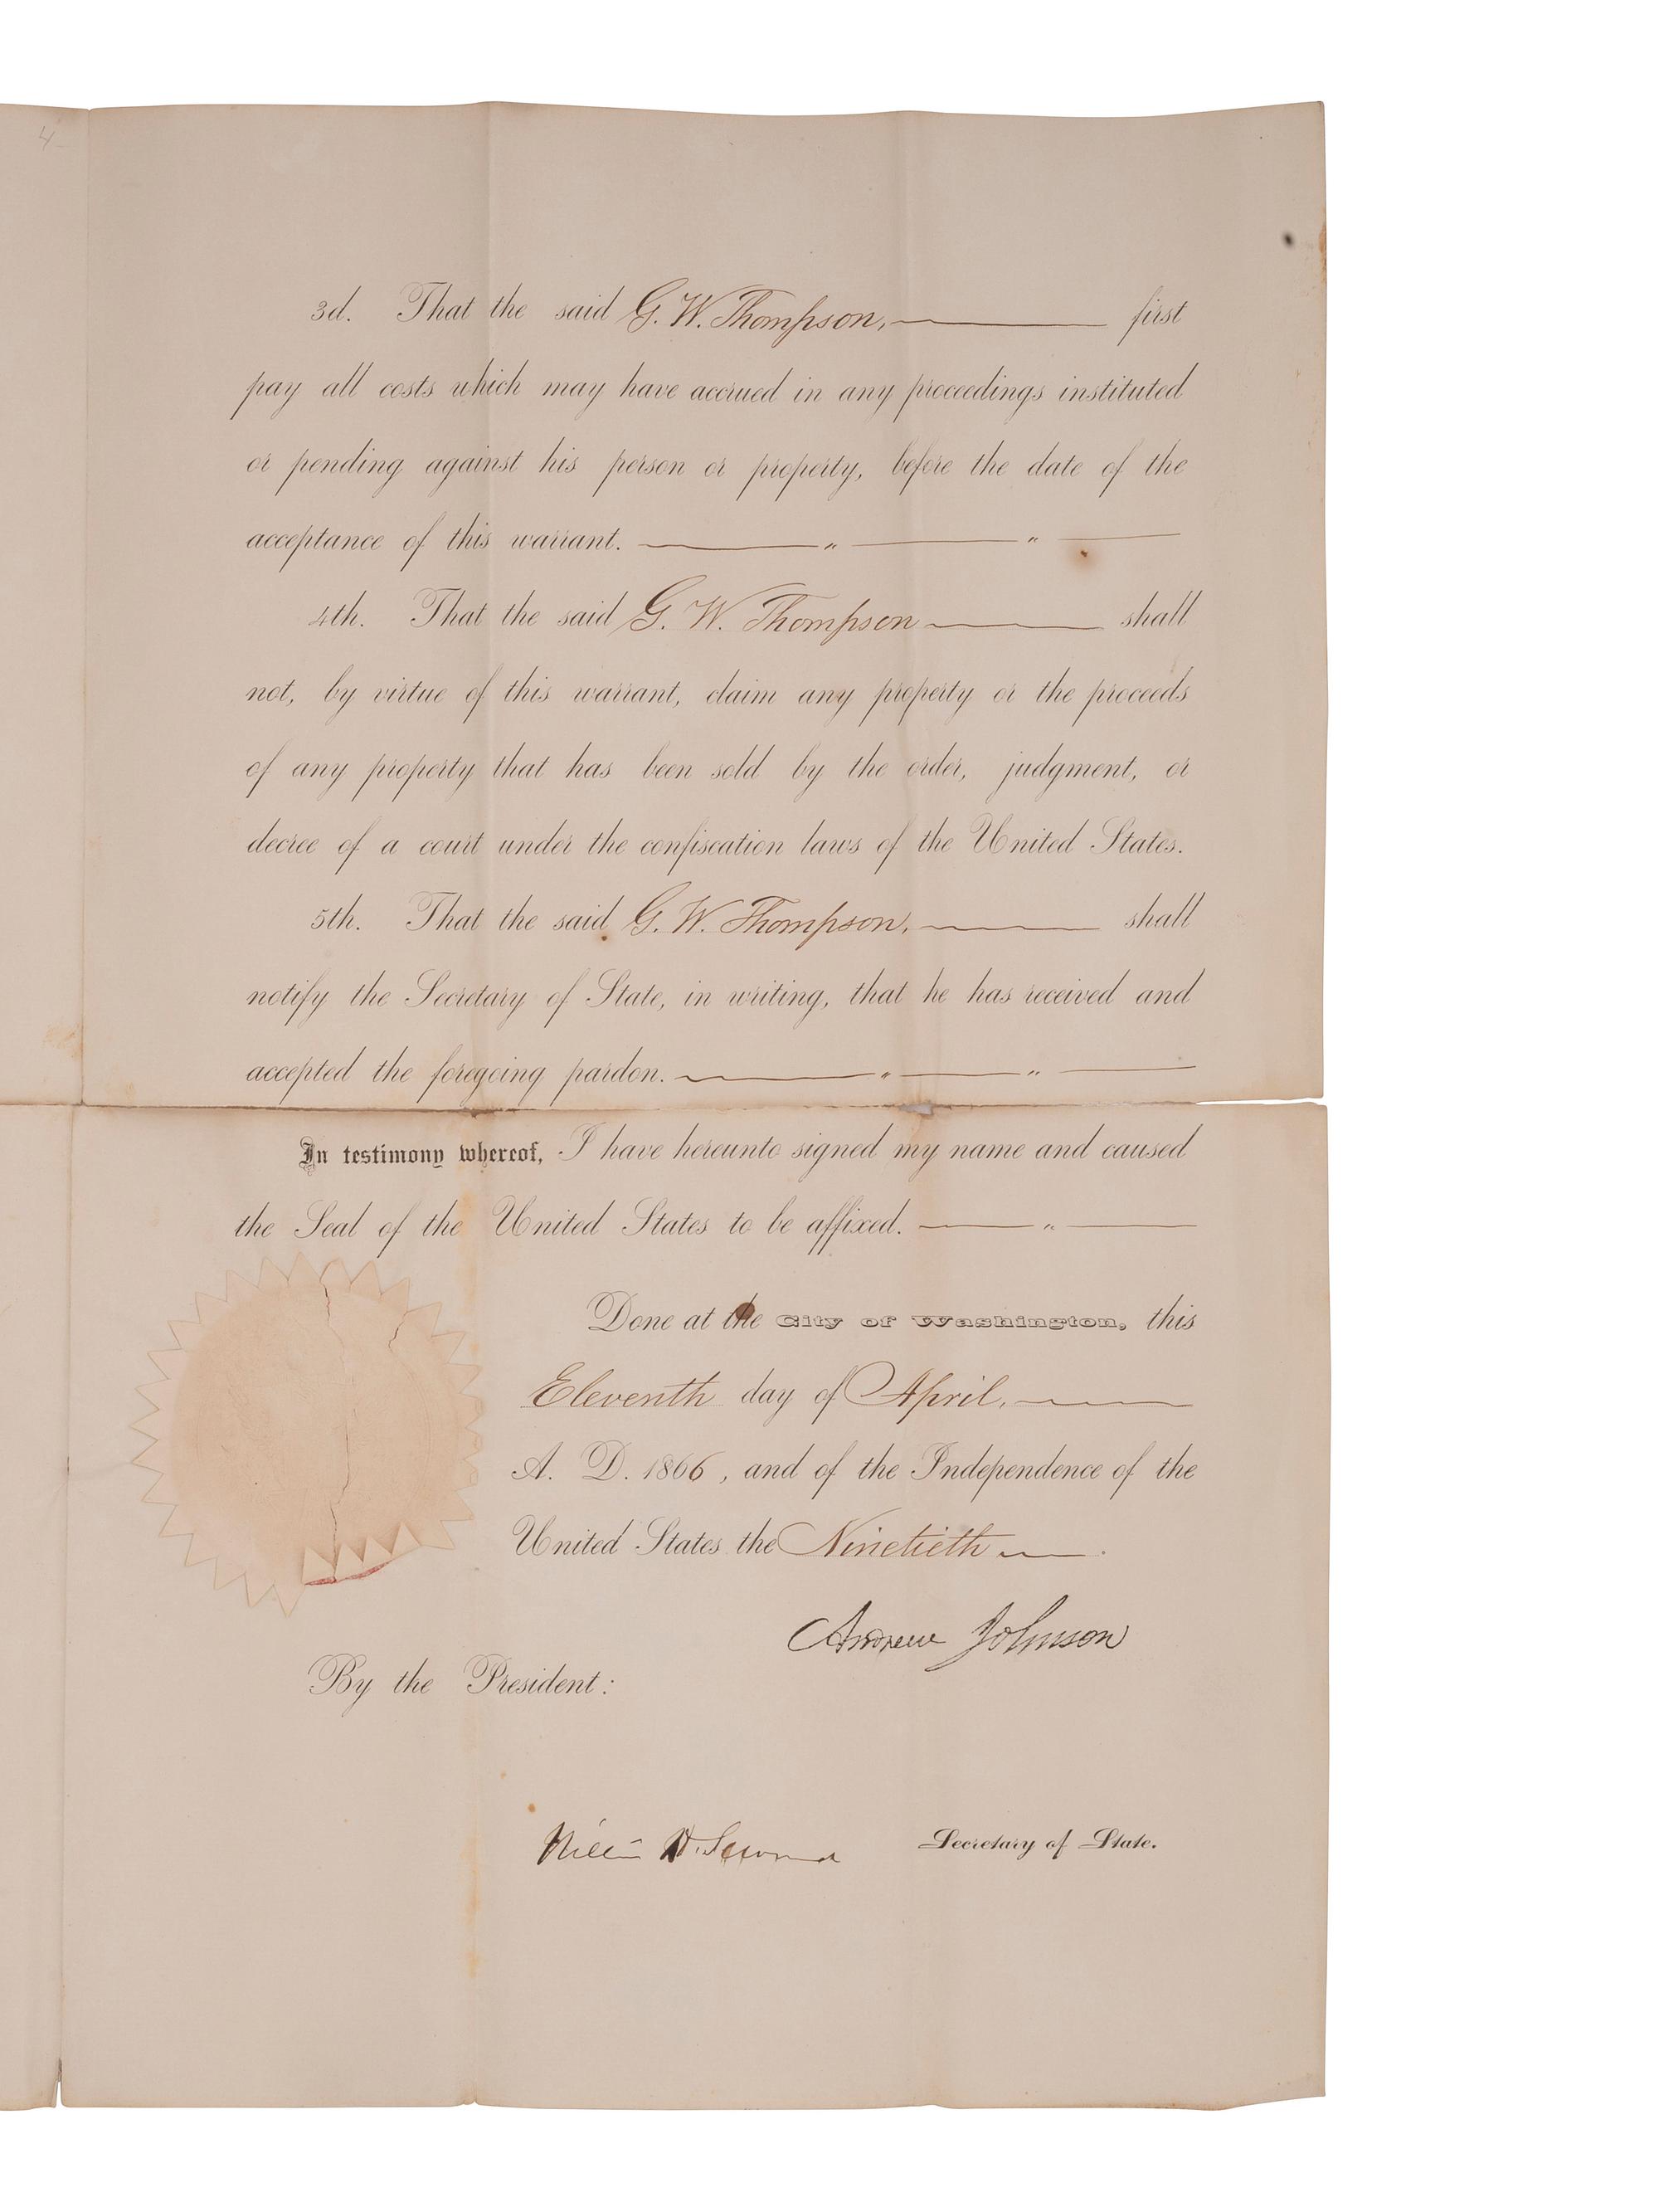 4
3d. That the said G. W. Thompson, first
pay all costs which may have accrued in any proceedings instituted
or pending against his person or property, before the date of the
acceptance of this warrant. " "
4th. That the said G. W. Thompson shall
not, by virtue of this warrant, claim any property or the proceeds
of any property that has been sold by the order, judgment, or
decree of a court under the confiscation laws of the United States.
5th. That the said G. W. Thompson, shall
notify the Secretary of State, in writing, that he has received and
accepted the foregoing pardon. " "
In testimony whereof, I have hereunto signed my name and caused
the Seal of the United States to be affixed. "
Done at the City of Washington, this
Eleventh day of April,
A. D. 1866, and of the Independence of the
United States the Ninetieth .
Andrew Johnson
By the President:
William H. Seward Secretary of State.